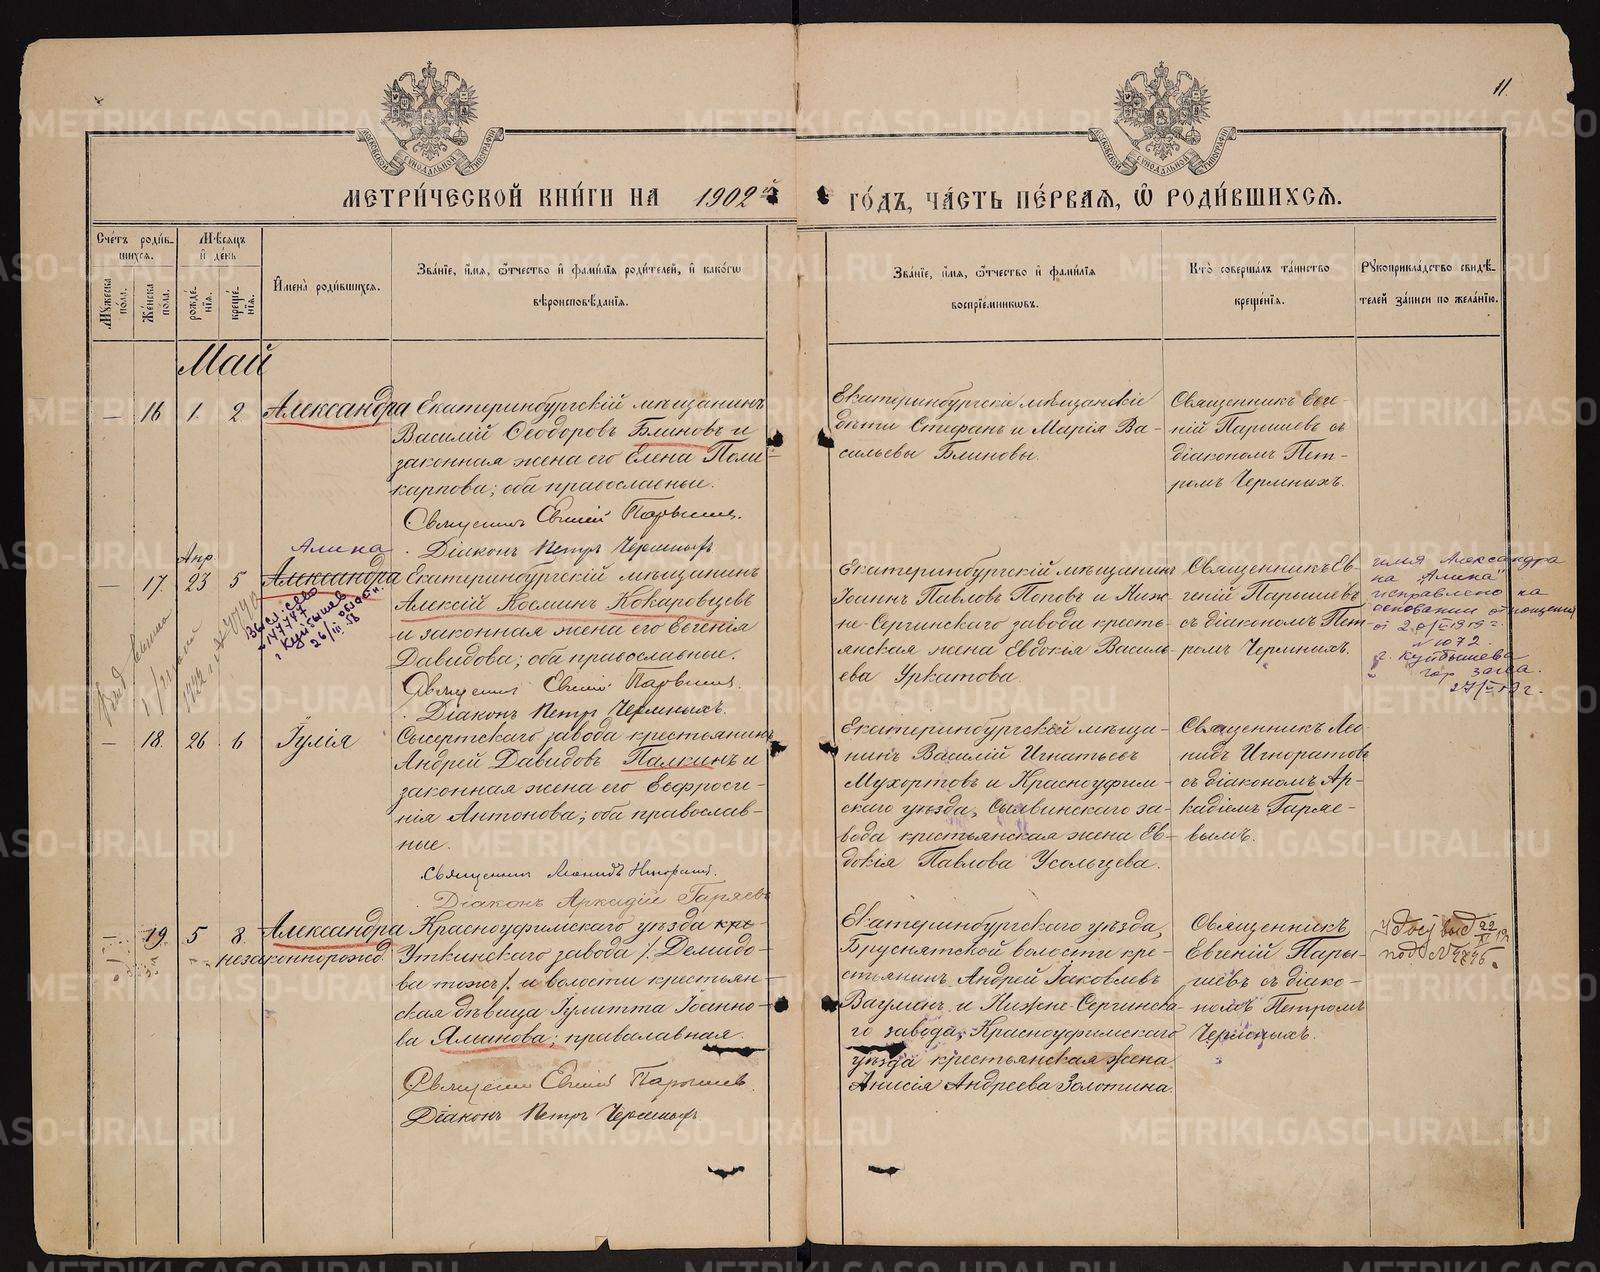 11.
МЕТРИ́ЧЕСКОЙ КНИ́ГИ НА 1902й ГО́ДЪ, ЧА́СТЬ ПЕ́РВАЯ, Ѿ РОДИ́ВШИХСЯ.
Сче́тъ роди́в-
шихся.
Мѣ́сяцъ
и҆ де́нь
Му́жеска по́ла.
Же́нска по́ла.
рожде́нїя.
креще́нїя.
И҆мена̀ роди́вшихся.
Зва́нїе, и҆́мя, ѻ҆́тчество и҆ фами́лїя роди́телей, и҆ како́гѡ
вѣроисповѣ́данїя.
Зва́нїе, и҆́мя, ѻ҆́тчество и҆ фами́лїя
воспрїе́мниковъ.
Кто̀ соверша́лъ та́инство
креще́нїя.
Рꙋкоприкла́дство свидѣ́-
телей за́писи по жела́нїю.
Май
— 16 1. 2 Александра
Екатеринбургскій мѣщанинъ
Василій Ѳеодоровъ Блиновъ и
законная жена его Елена Поли-
карпова; оба православные.
Священникъ Евгеній Парышевъ.
Діаконъ Петръ Чермныхъ
Екатеринбургскіе мѣщанскіе
дѣти Стефанъ и Марія Ва-
сильевы Блиновы.
Священникъ Евге-
ній Парышевъ съ
діакономъ Пет-
ромъ Чермныхъ.
Апр.
— 17. 23 5 Александра
Алина
Екатеринбургскій мѣщанинъ
Алексій Косминъ Кокаровцевъ
и законная жена его Евгенія
Давидова; оба православные.
Священникъ Евгеній Парышевъ.
Діаконъ Петръ Чермныхъ.
Екатеринбургскій мѣщанинъ
Іоаннъ Павловъ Поповъ и Ниж-
не-Сергинскаго завода кресть-
янская жена Евдокія Василь-
ева Уркатова.
Священникъ Ев-
геній Парышевъ
съ діакономъ Пет-
ромъ Чермныхъ.
имя Александра
на "Алина"
исправлено на
основании отношения
N 1072
г. Куйбышева
гор. загса.
г. Куйбышев
26/III 58
— 18. 26. 6 Іулія
Сысертскаго завода крестьянинъ
Андрей Давидовъ Палкинъ и
законная жена его Евфроси-
нія Антонова; оба православ-
ные.
Священникъ Леонидъ Игноратовъ.
Діаконъ Аркадій Гаряевъ
Екатеринбургскій мѣща-
нинъ Василій Игнатьевъ
Мухортовъ и Красноуфим-
скаго уѣзда, Сылвинскаго за-
вода крестьянская жена Ев-
докія Павлова Усольцева.
Священникъ Лео-
нидъ Игноратовъ
съ діакономъ Ар-
кадіемъ Гаряе-
вымъ.
— 19 5 8. Александра
незаконнорожд.
Красноуфимскаго уѣзда
Уткинскаго завода /. Демидо-
ва тожъ /. и волости крестьян-
ская дѣвица Іулитта Іоанно-
ва Яманова; православная.
Священникъ Евгеній Парышевъ.
Діаконъ Петръ Чермныхъ
Екатеринбургскаго уѣзда,
Бруснятской волости кре-
стьянинъ Андрей Іаковлевъ
Ваулинъ и Нижне-Сергинска-
го завода, Красноуфимскаго
уѣзда крестьянская жена
Анисія Андреева Золотина.
Священникъ
Евгеній Пары-
шевъ съ діако-
номъ Петромъ
Чермныхъ.